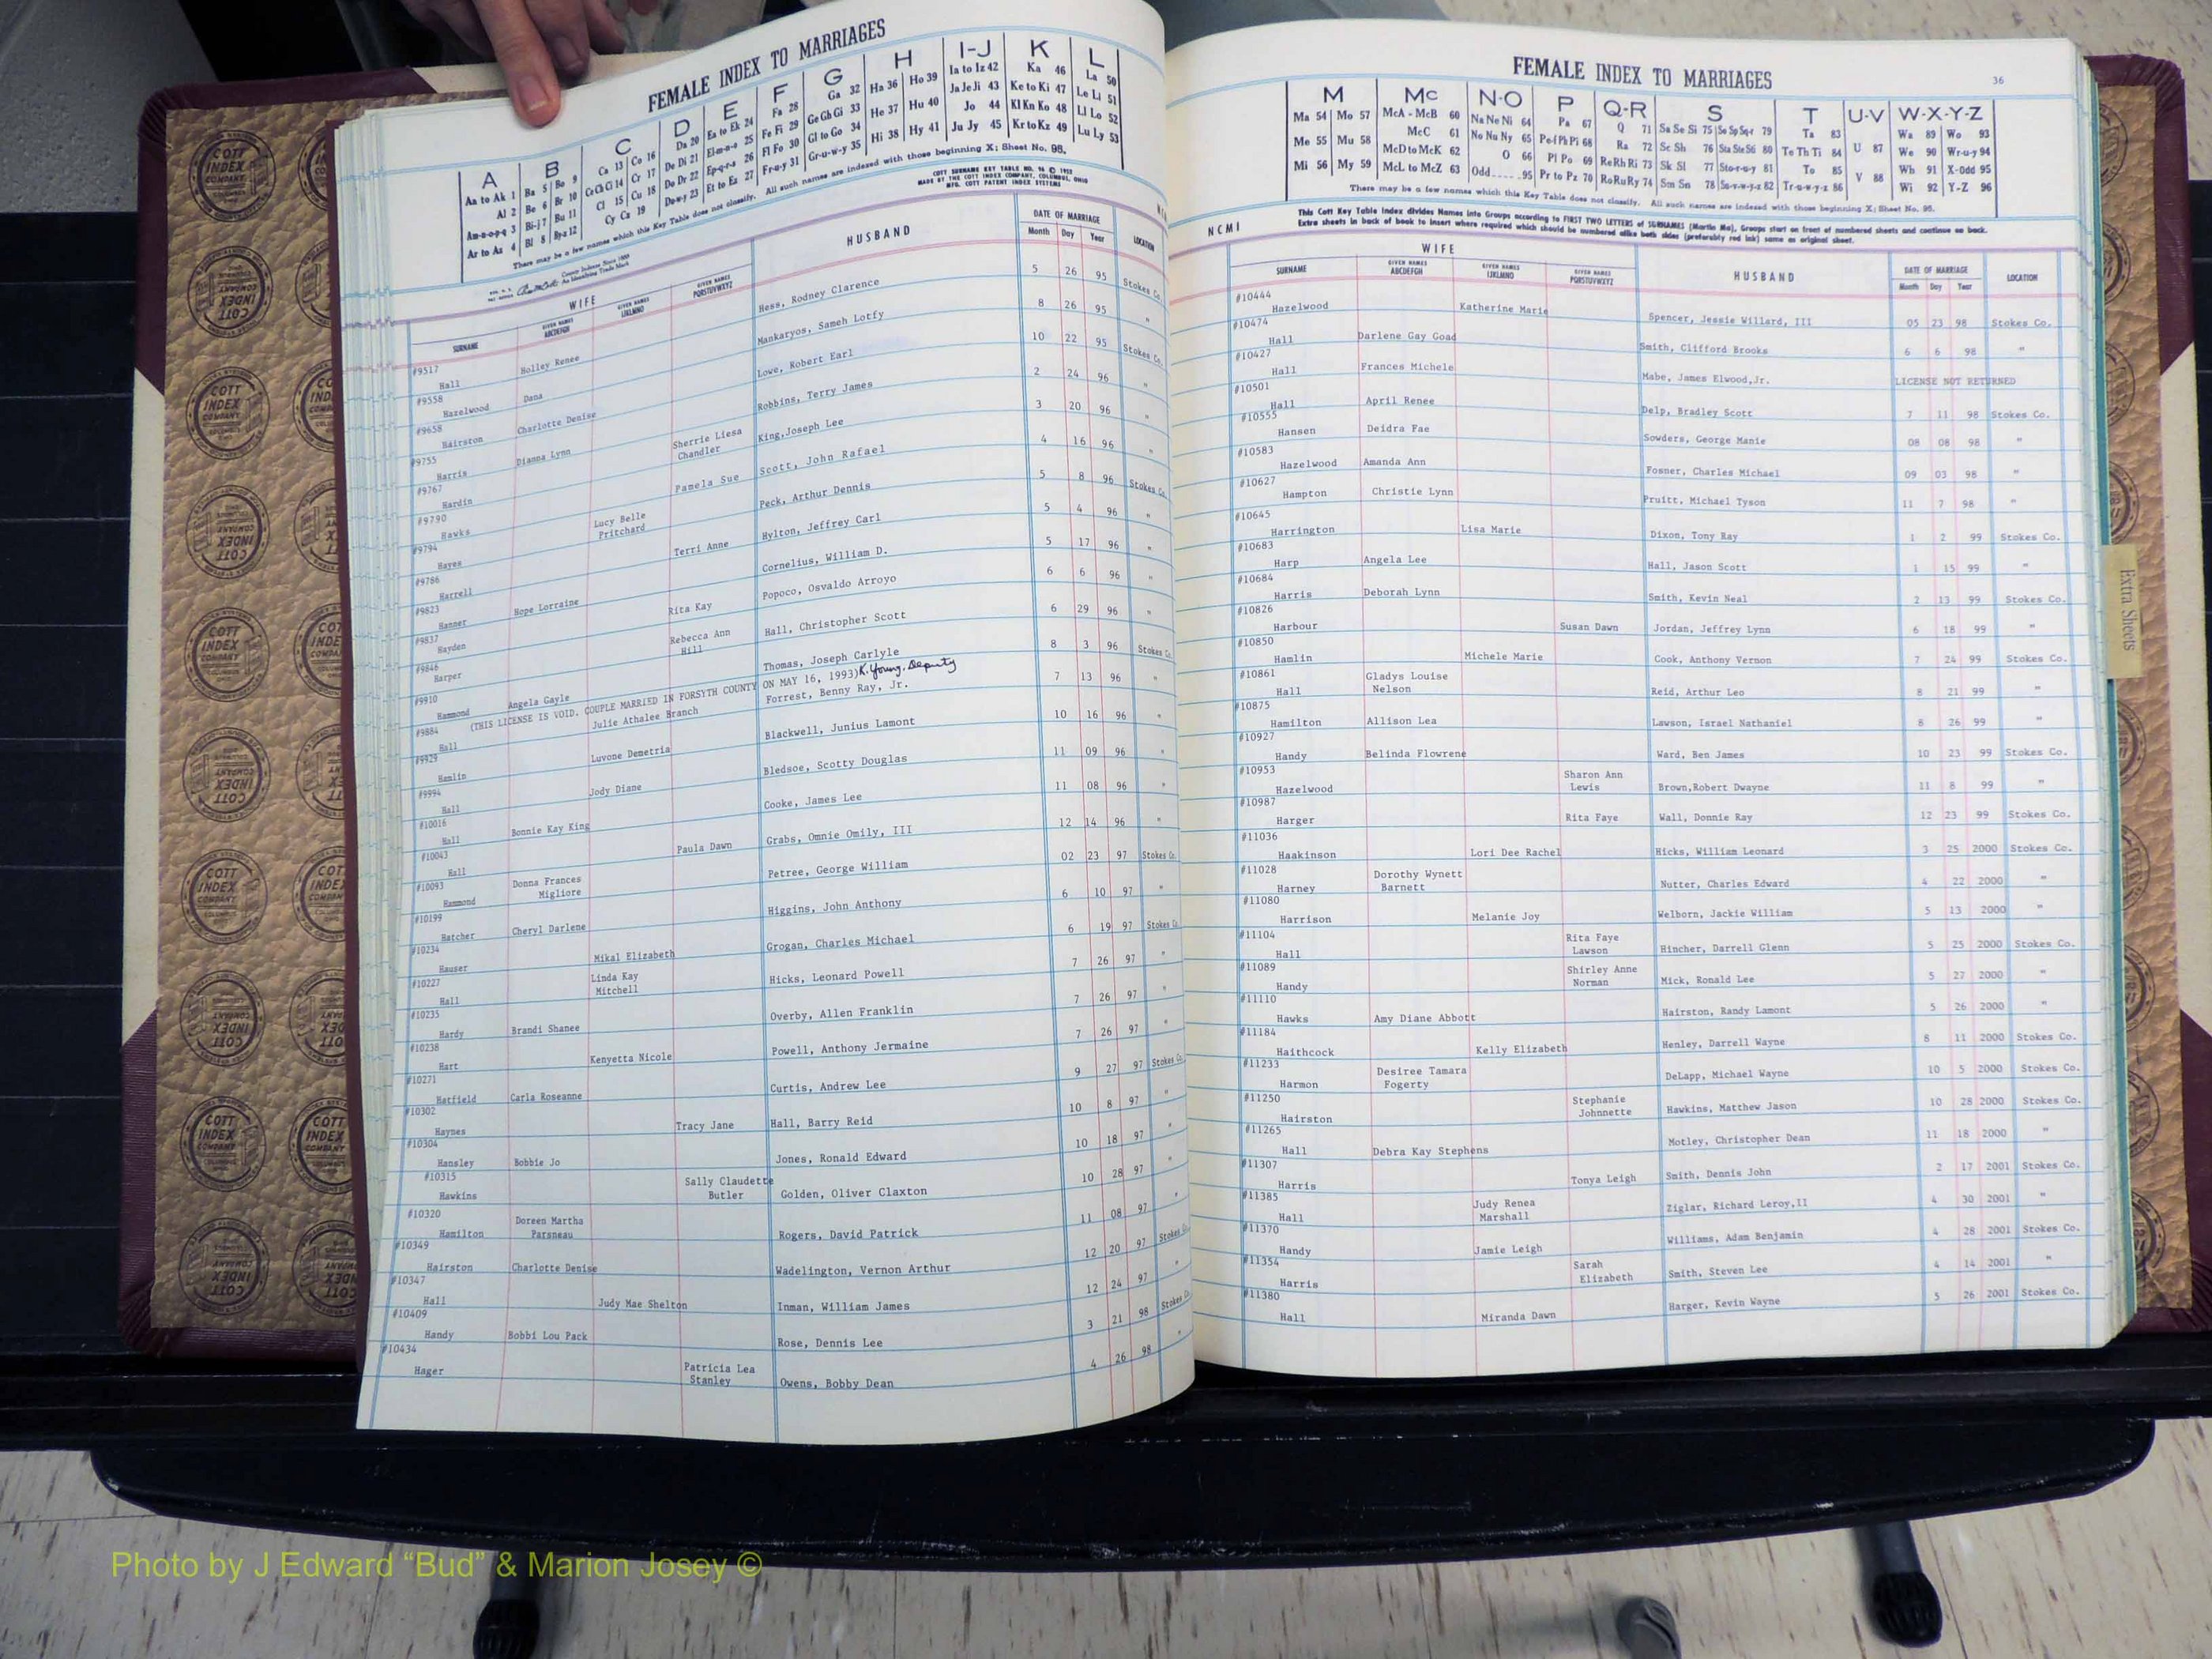 FEMALE INDEX TO MARRIAGES
A B C D E F G H I-J K L
Aa to Ak 1 Ba 5 Bo 9 Ca 13 Co 16 Da 20 Ea to Ek 24 Fa 28 Ga 32 Ha 36 Ho 39 Ia to Iz 42 Ka 46 La 50
Al 2 Be 6 Br 10 Ce Ch Ci 14 Cr 17 De Di 21 El-m-n-o 25 Fe Fi 29 Ge Gh Gi 33 He 37 Hu 40 Ja Je Ji 43 Ke to Ki 47 Le Li 51
Am-n-o-p-q 3 Bi-j 7 Bu 11 Cl 15 Cu 18 Do Dr 22 Ep-q-r-s 26 Fl Fo 30 Gl to Go 34 Hi 38 Hy 41 Jo 44 Kl Kn Ko 48 Ll Lo 52
Ar to Az 4 Bl 8 By-z 12 Cy Cz 19 Du-w-y 23 Et to Ez 27 Fr-u-y 31 Gr-u-w-y 35 Ju Jy 45 Kr to Kz 49 Lu Ly 53
There may be a few names which this Key Table does not classify. All such names are indexed with those beginning X; Sheet No. 95.
COTT SURNAME KEY TABLE NO. 96 © 1952
MADE BY THE COTT INDEX COMPANY, COLUMBUS, OHIO
MFG. COTT PATENT INDEX SYSTEMS
County Indexes Since 1888
An Identifying Trade Mark
WIFE HUSBAND DATE OF MARRIAGE LOCATION
SURNAME GIVEN NAMES ABCDEFGH GIVEN NAMES IJKLMNO GIVEN NAMES PQRSTUVWXYZ Month Day Year
#9517 Hall Holley Renee Hess, Rodney Clarence 5 26 95 Stokes Co.
#9558 Hazelwood Dana Mankaryos, Sameh Lotfy 8 26 95 "
#9658 Hairston Charlotte Denise Lowe, Robert Earl 10 22 95 Stokes Co.
#9755 Harris Dianna Lynn Robbins, Terry James 2 24 96 "
#9767 Hardin Sherrie Liesa Chandler King,Joseph Lee 3 20 96 "
#9790 Hawks Pamela Sue Scott, John Rafael 4 16 96 "
#9794 Hayes Lucy Belle Pritchard Peck, Arthur Dennis 5 8 96 Stokes Co.
#9786 Harrell Terri Anne Hylton, Jeffrey Carl 5 4 96 "
#9823 Hanner Hope Lorraine Cornelius, William D. 5 17 96 "
#9837 Hayden Rita Kay Popoco, Osvaldo Arroyo 6 6 96 "
#9846 Harper Rebecca Ann Hill Hall, Christopher Scott 6 29 96 "
#9910 Hammond Angela Gayle Thomas, Joseph Carlyle 8 3 96 Stokes Co.
(THIS LICENSE IS VOID. COUPLE MARRIED IN FORSYTH COUNTY ON MAY 16, 1993) K. Young, Deputy
#9884 Hall Julie Athalee Branch Forrest, Benny Ray, Jr. 7 13 96 "
#9929 Hamlin Luvone Demetria Blackwell, Junius Lamont 10 16 96 "
#9994 Hall Jody Diane Bledsoe, Scotty Douglas 11 09 96 "
#10016 Hall Bonnie Kay King Cooke, James Lee 11 08 96 "
#10043 Hall Paula Dawn Grabs, Omnie Omily, III 12 14 96 "
#10093 Hammond Donna Frances Migliore Petree, George William 02 23 97 Stokes Co.
#10199 Hatcher Cheryl Darlene Higgins, John Anthony 6 10 97 "
#10234 Hauser Mikal Elizabeth Grogan, Charles Michael 6 19 97 Stokes Co.
#10227 Hall Linda Kay Mitchell Hicks, Leonard Powell 7 26 97 "
#10235 Hardy Brandi Shanee Overby, Allen Franklin 7 26 97 "
#10238 Hart Kenyetta Nicole Powell, Anthony Jermaine 7 26 97 "
#10271 Hatfield Carla Roseanne Curtis, Andrew Lee 9 27 97 Stokes Co.
#10302 Haynes Tracy Jane Hall, Barry Reid 10 8 97 "
#10304 Hansley Bobbie Jo Jones, Ronald Edward 10 18 97 "
#10315 Hawkins Sally Claudette Butler Golden, Oliver Claxton 10 28 97 "
#10320 Hamilton Doreen Martha Parsneau Rogers, David Patrick 11 08 97 "
#10349 Hairston Charlotte Denise Wadelington, Vernon Arthur 12 20 97 Stokes Co.
#10347 Hall Judy Mae Shelton Inman, William James 12 24 97 "
#10409 Handy Bobbi Lou Pack Rose, Dennis Lee 3 21 98 Stokes Co.
#10434 Hager Patricia Lea Stanley Owens, Bobby Dean 4 26 98 "
FEMALE INDEX TO MARRIAGES 36
M Mc N-O P Q-R S T U-V W-X-Y-Z
Ma 54 Mo 57 McA - McB 60 Na Ne Ni 64 Pa 67 Q 71 Sa Se Si 75 So Sp Sq-r 79 Ta 83 U 87 Wa 89 Wo 93
Me 55 Mu 58 McC 61 No Nu Ny 65 Pe-f Ph Pi 68 Ra 72 Sc Sh 76 Sta Ste Sti 80 Te Th Ti 84 V 88 We 90 Wr-u-y 94
Mi 56 My 59 McD to McK 62 O 66 Pl Po 69 Re Rh Ri 73 Sk Sl 77 Sto-r-u-y 81 To 85 Wh 91 X-Odd 95
McL to McZ 63 Odd 95 Pr to Pz 70 Ro Ru Ry 74 Sm Sn 78 Su-v-w-y-z 82 Tr-u-w-y-z 86 Wi 92 Y-Z 96
There may be a few names which this Key Table does not classify. All such names are indexed with those beginning X; Sheet No. 95.
NCMI
This Cott Key Table Index divides Names into Groups according to FIRST TWO LETTERS of SURNAMES (Martin Ma), Groups start on front of numbered sheets and continue on back.
Extra sheets in back of book to insert where required which should be numbered alike both sides (preferably red ink) same as original sheet.
WIFE HUSBAND DATE OF MARRIAGE LOCATION
SURNAME GIVEN NAMES ABCDEFGH GIVEN NAMES IJKLMNO GIVEN NAMES PQRSTUVWXYZ Month Day Year
#10444 Hazelwood Katherine Marie Spencer, Jessie Willard, III 05 23 98 Stokes Co.
#10474 Hall Darlene Gay Goad Smith, Clifford Brooks 6 6 98 "
#10427 Hall Frances Michele Mabe, James Elwood,Jr. LICENSE NOT RETURNED
#10501 Hall April Renee Delp, Bradley Scott 7 11 98 Stokes Co.
#10555 Hansen Deidra Fae Sowders, George Manie 08 08 98 "
#10583 Hazelwood Amanda Ann Fosner, Charles Michael 09 03 98 "
#10627 Hampton Christie Lynn Pruitt, Michael Tyson 11 7 98 "
#10645 Harrington Lisa Marie Dixon, Tony Ray 1 2 99 Stokes Co.
#10683 Harp Angela Lee Hall, Jason Scott 1 15 99 "
#10684 Harris Deborah Lynn Smith, Kevin Neal 2 13 99 Stokes Co.
#10826 Harbour Susan Dawn Jordan, Jeffrey Lynn 6 18 99 "
#10850 Hamlin Michele Marie Cook, Anthony Vernon 7 24 99 Stokes Co.
#10861 Hall Gladys Louise Nelson Reid, Arthur Leo 8 21 99 "
#10875 Hamilton Allison Lea Lawson, Israel Nathaniel 8 26 99 "
#10927 Handy Belinda Flowrene Ward, Ben James 10 23 99 Stokes Co.
#10953 Hazelwood Sharon Ann Lewis Brown,Robert Dwayne 11 8 99 "
#10987 Harger Rita Faye Wall, Donnie Ray 12 23 99 Stokes Co.
#11036 Haakinson Lori Dee Rachel Hicks, William Leonard 3 25 2000 Stokes Co.
#11028 Harney Dorothy Wynett Barnett Nutter, Charles Edward 4 22 2000 "
#11080 Harrison Melanie Joy Welborn, Jackie William 5 13 2000 "
#11104 Hall Rita Faye Lawson Hincher, Darrell Glenn 5 25 2000 Stokes Co.
#11089 Handy Shirley Anne Norman Mick, Ronald Lee 5 27 2000 "
#11110 Hawks Amy Diane Abbott Hairston, Randy Lamont 5 26 2000 "
#11184 Haithcock Kelly Elizabeth Henley, Darrell Wayne 8 11 2000 Stokes Co.
#11233 Harmon Desiree Tamara Fogerty DeLapp, Michael Wayne 10 5 2000 Stokes Co.
#11250 Hairston Stephanie Johnnette Hawkins, Matthew Jason 10 28 2000 Stokes Co.
#11265 Hall Debra Kay Stephens Motley, Christopher Dean 11 18 2000 "
#11307 Harris Tonya Leigh Smith, Dennis John 2 17 2001 Stokes Co.
#11385 Hall Judy Renea Marshall Ziglar, Richard Leroy,II 4 30 2001 "
#11370 Handy Jamie Leigh Williams, Adam Benjamin 4 28 2001 Stokes Co.
#11354 Harris Sarah Elizabeth Smith, Steven Lee 4 14 2001 "
#11380 Hall Miranda Dawn Harger, Kevin Wayne 5 26 2001 Stokes Co.
Extra Sheets
COTT INDEX COMPANY
Photo by J Edward “Bud” & Marion Josey ©